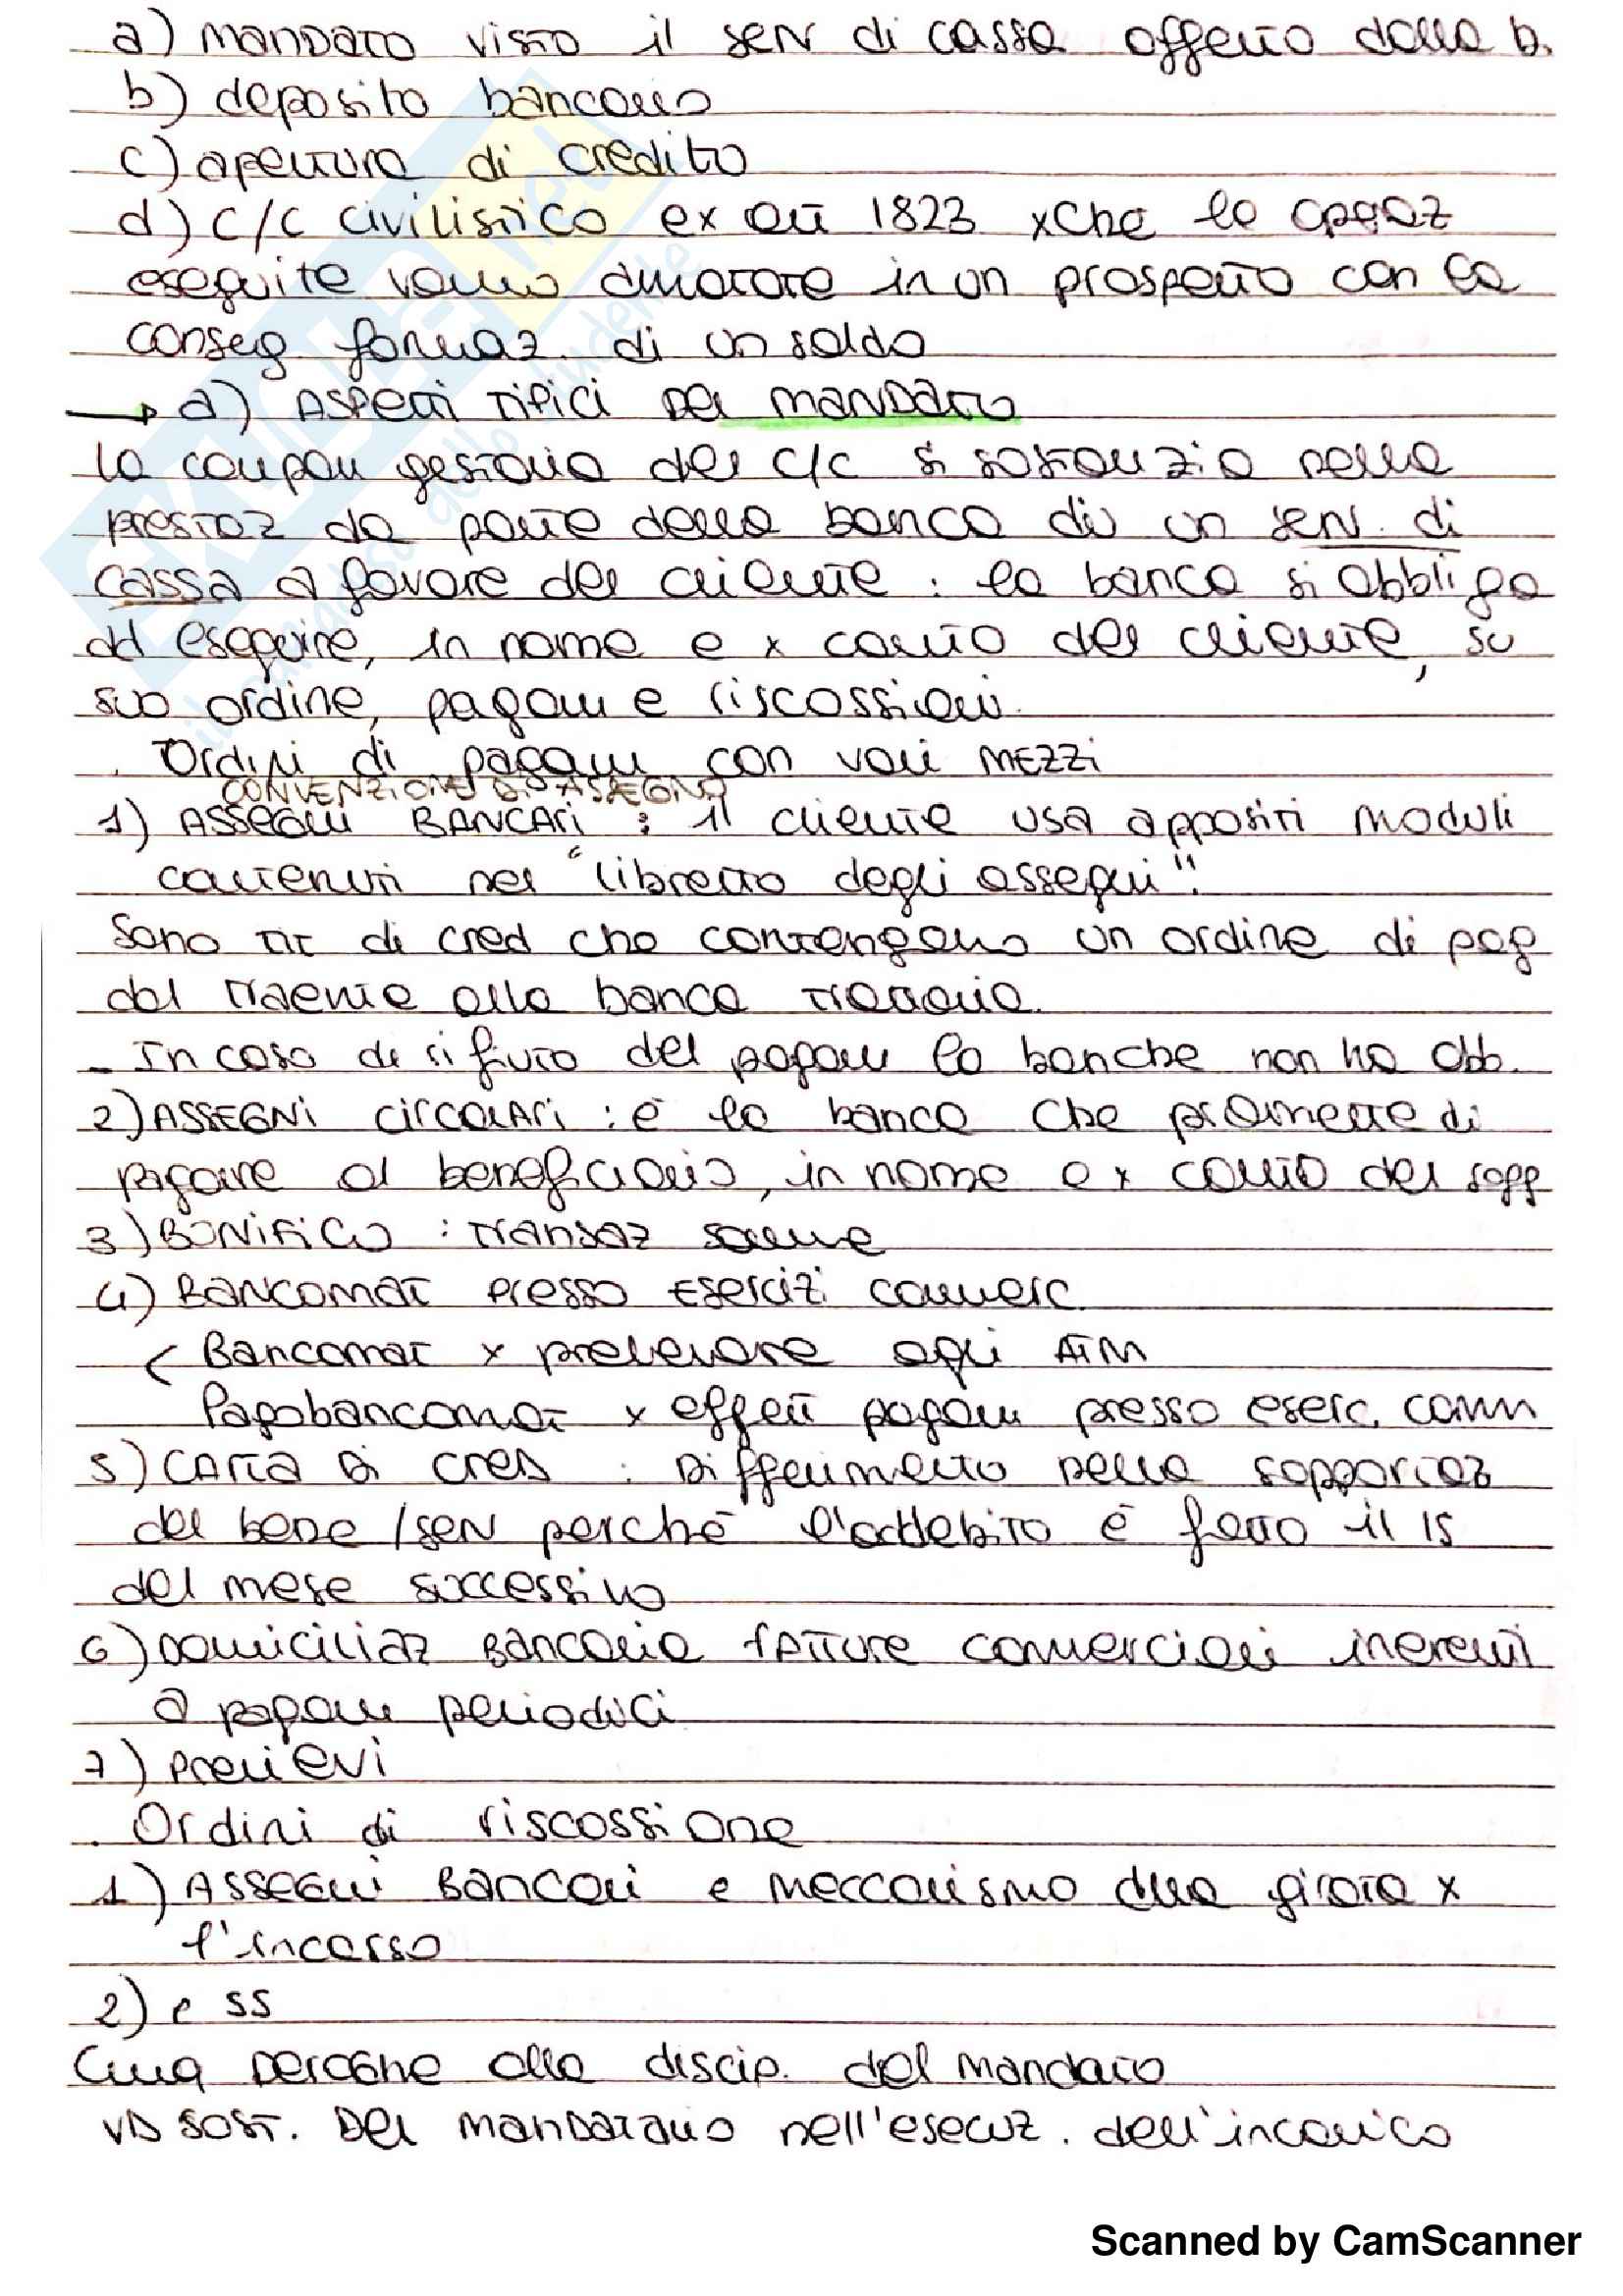 a) mandato visto il serv di cassa offerto dalla b.
b) deposito bancario
c) apertura di credito
d) c/c civilistico ex art 1823 xche le operaz
eseguite vanno annotate in un prospetto con la
conseg formaz. di un saldo
→ a) Aspetti tipici del mandato
La compon gestoria del c/c si sostanzia nella
prestaz da parte della banca di un serv. di
cassa a favore del cliente : la banca si obbliga
ad eseguire, in nome e x conto del cliente, su
suo ordine, pagam e riscossioni.
. Ordini di pagam con vari mezzi
CONVENZIONE DI ASSEGNO
1) Assegni BANCARI : il cliente usa appositi moduli
contenuti nel "libretto degli assegni".
Sono tit di cred che contengono un ordine di pag
dal traente alla banca trattaria.
- In caso di rifiuto del pagam la banche non ha obb.
2) ASSEGNI circolari : è la banca che promette di
pagare al beneficiario, in nome e x conto del sogg
3) BONIFICO : transaz
4) Bancomat presso esercizi commerc.
< Bancomat x prelevare agli ATM
Pagobancomat x effett pagam presso eserc. comm
5) CARTA DI CRED : Differimento nella sopportaz
del bene / serv perchè l'addebito è fatto il 15
del mese successivo
6) Domiciliaz Bancaria fatture commerciali inerenti
a pagam periodici
7) Prelievi
. Ordini di riscossione
1) Assegni Bancari e meccanismo della girata x
l'incasso
2) e ss
Cmq deroghe alla discip. del mandato
VD SOST. Del mandatario nell'esecuz. dell'incarico
Scanned by CamScanner